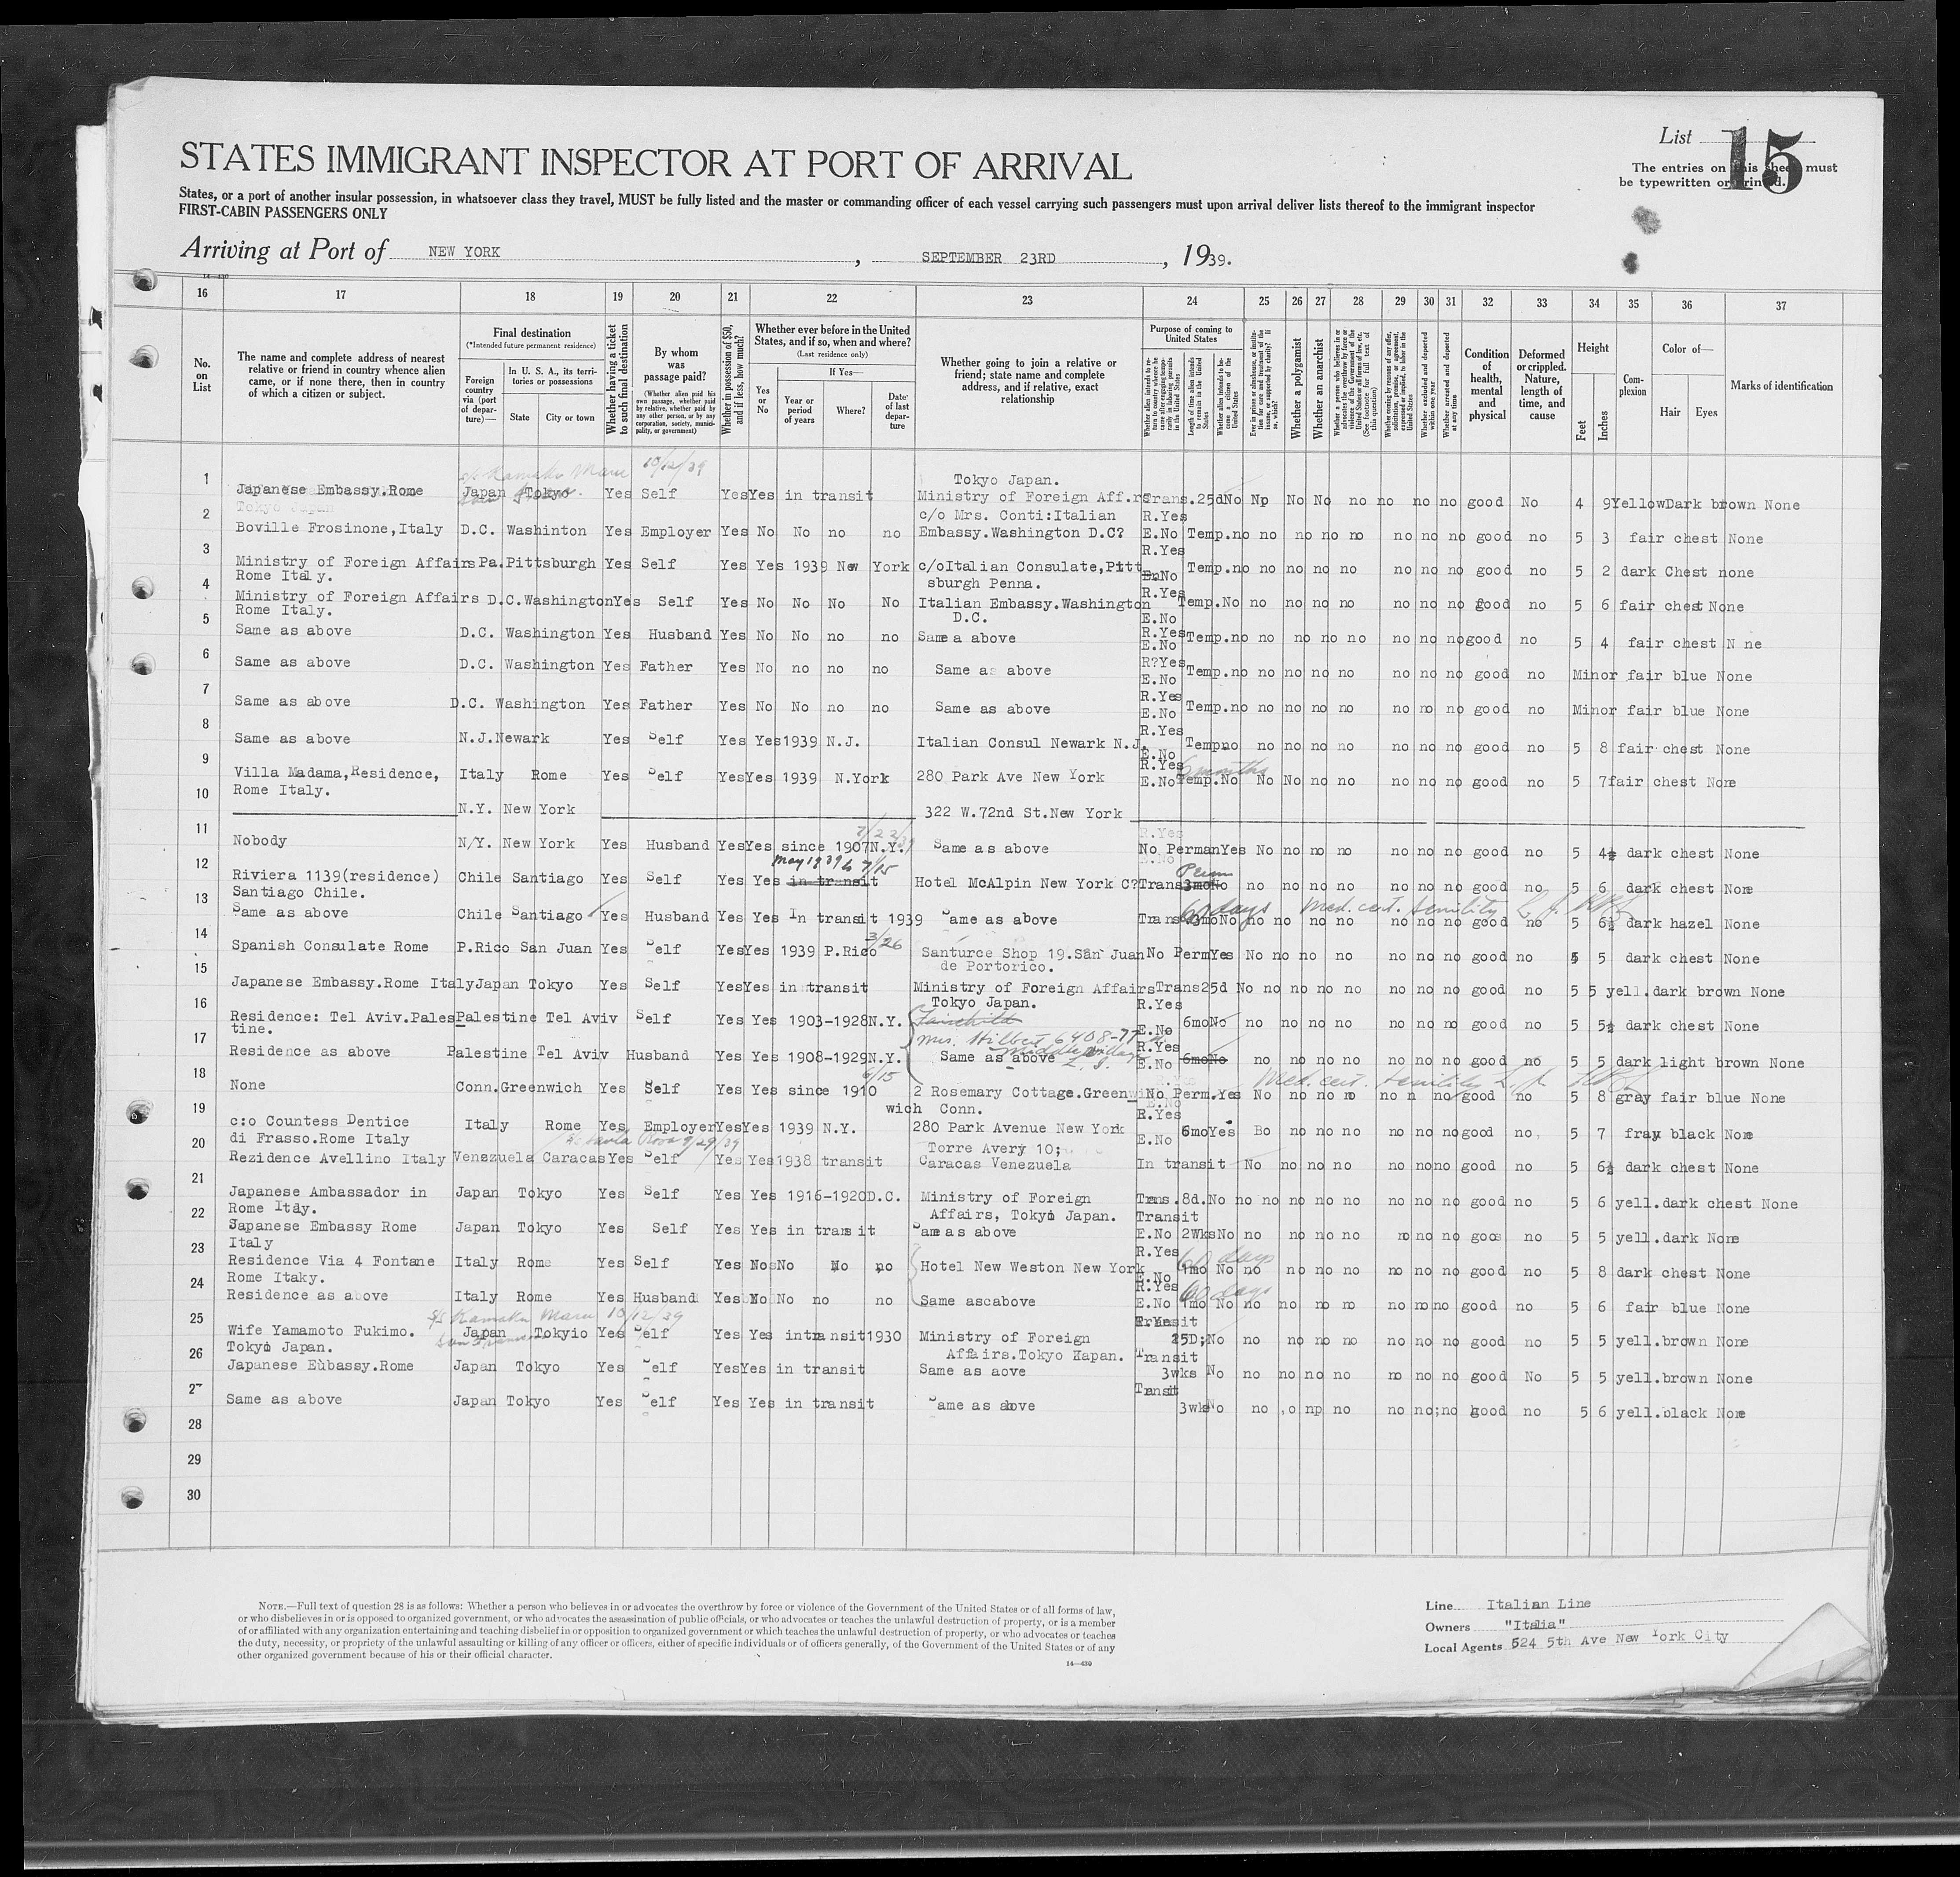 List 15
STATES IMMIGRANT INSPECTOR AT PORT OF ARRIVAL
The entries on this sheet must
be typewritten or printed.
States, or a port of another insular possession, in whatsoever class they travel, MUST be fully listed and the master or commanding officer of each vessel carrying such passengers must upon arrival deliver lists thereof to the immigrant inspector
FIRST-CABIN PASSENGERS ONLY
Arriving at Port of NEW YORK , SEPTEMBER 23RD , 1939.
14-430
16 17 18 19 20 21 22 23 24 25 26 27 28 29 30 31 32 33 34 35 36 37
No. on List
The name and complete address of nearest relative or friend in country whence alien came, or if none there, then in country of which a citizen or subject.
Final destination
(*Intended future permanent residence)
Foreign country via (port of departure)—
In U. S. A., its territories or possessions
State City or town
Whether having a ticket to such final destination
By whom was passage paid?
(Whether alien paid his own passage, whether paid by relative, whether paid by any other person, or by any corporation, society, municipality, or government)
Whether in possession of $50, and if less, how much?
Whether ever before in the United States, and if so, when and where?
(Last residence only)
Yes or No
If Yes—
Year or period of years
Where?
Date of last departure
Whether going to join a relative or friend; state name and complete address, and if relative, exact relationship
Purpose of coming to United States
Whether alien intends to return to country whence he came after engaging temporarily in laboring pursuits in the United States
Length of time alien intends to remain in the United States
Whether alien intends to become a citizen of the United States
Ever in prison or almshouse, or institution for care and treatment of the insane, or supported by charity? If so, which?
Whether a polygamist
Whether an anarchist
Whether a person who believes in or advocates the overthrow by force or violence of the Government of the United States or all forms of law, etc. (See footnote for full text of this question)
Whether coming by reasons of any offer, solicitation, promise, or agreement, expressed or implied, to labor in the United States
Whether excluded and deported within one year
Whether arrested and deported at any time
Condition of health, mental and physical
Deformed or crippled. Nature, length of time, and cause
Height
Feet Inches
Complexion
Color of—
Hair Eyes
Marks of identification
10/12/39
Tokyo Japan.
1 Japanese Embassy.Rome Japan Tokyo Yes Self Yes Yes in transit Ministry of Foreign Aff.rs Trans.25d No Np No No no no no no good No 4 9 Yellow Dark brown None
c/o Mrs. Conti:Italian R.Yes
2 Boville Frosinone,Italy D.C. Washinton Yes Employer Yes No No no no Embassy.Washington D.C? E.No Temp.no no no no no no no no good no 5 3 fair chest None
R.Yes
3 Ministry of Foreign Affairs Pa.Pittsburgh Yes Self Yes Yes 1939 New York c/oItalian Consulate,Pitt Temp.no no no no no no no no good no 5 2 dark Chest none
Rome Italy. sburgh Penna.
4 Ministry of Foreign Affairs D.C.Washington Yes Self Yes No No No No Italian Embassy.Washington R.Yes Temp.No no no no no no no no good no 5 6 fair chest None
Rome Italy. D.C. E.No
5 Same as above D.C. Washington Yes Husband Yes No No no no Same a above R.Yes E.No Temp.no no no no no no no no good no 5 4 fair chest N ne
6 Same as above D.C. Washington Yes Father Yes No no no no Same as above R?Yes E.No Temp.no no no no no no no no good no Minor fair blue None
7 Same as above D.C. Washington Yes Father Yes No No no no Same as above R.Yes E.No Temp.no no no no no no no no good no Minor fair blue None
8 Same as above N.J.Newark Yes Self Yes Yes 1939 N.J. Italian Consul Newark N.J. R.Yes E.No Temp no no no no no no no no good no 5 8 fair chest None
6 months
9 Villa Madama,Residence, Italy Rome Yes Self Yes Yes 1939 N.York 280 Park Ave New York R.Yes E.No Temp.No No No no no no no no good no 5 7 fair chest None
Rome Italy.
10 N.Y. New York 322 W.72nd St.New York
R.Yes
11 Nobody N/Y. New York Yes Husband Yes Yes since 1907 N.Y. Same as above No Perman Yes No no no no no no no good no 5 4½ dark chest None
12 Riviera 1139(residence) Chile Santiago Yes Self Yes Yes in transit Hotel McAlpin New York C? Trans 3mo No no no no no no no no good no 5 6 dark chest None
Santiago Chile.
60 days Med. cert. senility
13 Same as above Chile Santiago Yes Husband Yes Yes In transit 1939 Same as above Trans 3mo No no no no no no no no good no 5 6½ dark hazel None
3/26
14 Spanish Consulate Rome P.Rico San Juan Yes Self Yes Yes 1939 P.Rico Santurce Shop 19.San Juan No Perm Yes No no no no no no no good no 5 5 dark chest None
de Portorico.
15 Japanese Embassy.Rome Italy Japan Tokyo Yes Self Yes Yes in transit Ministry of Foreign Affairs Trans 25d No no no no no no no no good no 5 5 yell.dark brown None
Tokyo Japan.
16 Residence: Tel Aviv.Pales Palestine Tel Aviv Self Yes Yes 1903-1928 N.Y. R.Yes E.No 6mo No no no no no no no no good no 5 5½ dark chest None
tine.
Mrs. Hilbert 6408-77
17 Residence as above Palestine Tel Aviv Husband Yes Yes 1908-1929 N.Y. Same as above R.Yes E.No 6mo No no no no no no no no good no 5 5 dark light brown None
Med. cert. senility
18 None Conn.Greenwich Yes Self Yes Yes since 1910 2 Rosemary Cottage.Greenwi No Perm.Yes No no no no no n no good no 5 8 gray fair blue None
wich Conn.
19 c:o Countess Dentice Italy Rome Yes Employer Yes Yes 1939 N.Y. 280 Park Avenue New York R.Yes E.No 6mo Yes Bo no no no no no no good no, 5 7 fray black None
di Frasso.Rome Italy Torre Avery 10;
20 Rezidence Avellino Italy Venezuela Caracas Yes Self Yes Yes 1938 transit Caracas Venezuela In transit No no no no no no no good no 5 6½ dark chest None
21 Japanese Ambassador in Japan Tokyo Yes Self Yes Yes 1916-1920 D.C. Ministry of Foreign Trans.8d.No no no no no no no no no good no 5 6 yell.dark chest None
Rome Itay. Affairs, Tokyo Japan. Transit
22 Japanese Embassy Rome Japan Tokyo Yes Self Yes Yes in transit Same as above E.No 2Wks No no no no no no no no good no 5 5 yell.dark None
Italy
60 days
23 Residence Via 4 Fontane Italy Rome Yes Self Yes No No No no Hotel New Weston New York R.Yes E.No 1mo No no no no no no no no good no 5 8 dark chest None
Rome Itaky.
60 days
24 Residence as above Italy Rome Yes Husband Yes No No no no Same as above R.Yes E.No 1mo No no no no no no no no good no 5 6 fair blue None
s/s Kamaku Maru 10/12/39
25 Wife Yamamoto Fukimo. Japan Tokyio Yes Self Yes Yes intransit 1930 Ministry of Foreign 25D; No no no no no no no no good no 5 5 yell.brown None
Tokyo Japan. Affairs.Tokyo Hapan. Transit
26 Japanese Embassy.Rome Japan Tokyo Yes Self Yes Yes in transit Same as aove 3wks No no no no no no no no good No 5 5 yell.brown None
27 Same as above Japan Tokyo Yes Self Yes Yes in transit Same as above Transit 3wks No no ,o np no no no;no good no 5 6 yell.black None
28
29
30
NOTE.—Full text of question 28 is as follows: Whether a person who believes in or advocates the overthrow by force or violence of the Government of the United States or of all forms of law,
or who disbelieves in or is opposed to organized government, or who advocates the assassination of public officials, or who advocates or teaches the unlawful destruction of property, or is a member
of or affiliated with any organization entertaining and teaching disbelief in or opposition to organized government or which teaches the unlawful destruction of property, or who advocates or teaches
the duty, necessity, or propriety of the unlawful assaulting or killing of any officer or officers, either of specific individuals or of officers generally, of the Government of the United States or of any
other organized government because of his or their official character.
14-430
Line Italian Line
Owners "Italia"
Local Agents 524 5th Ave New York City